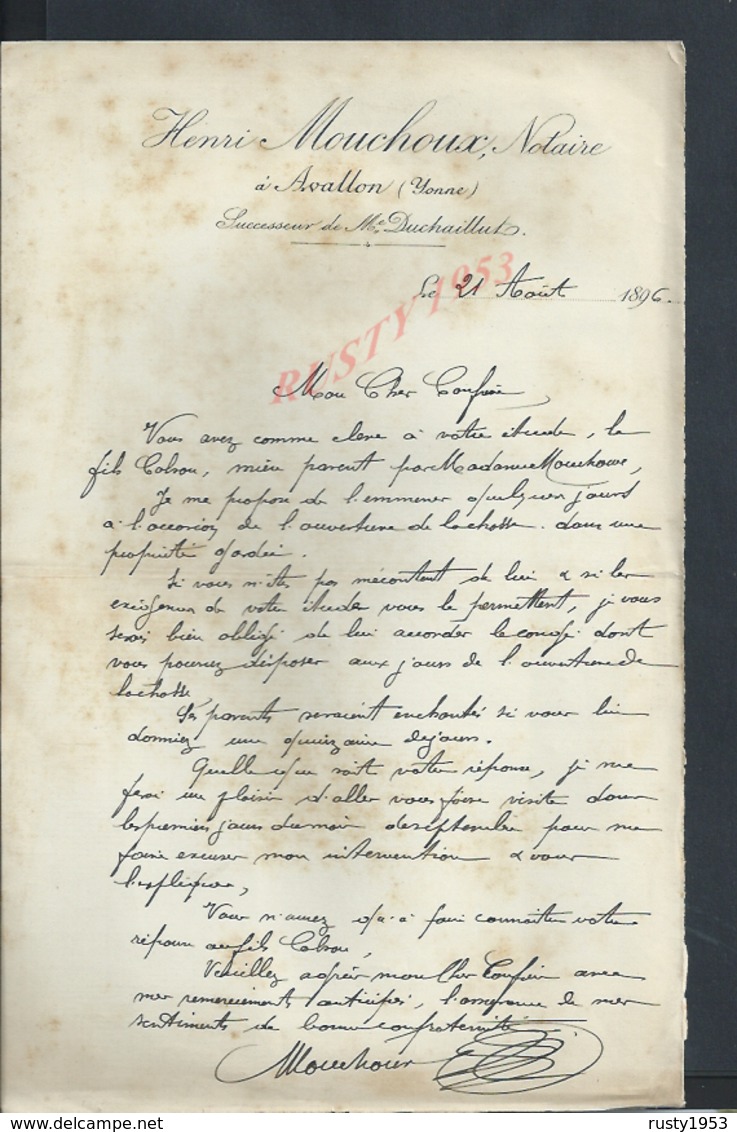 Henri Mouchoux, Notaire
à Avallon (Yonne)
Successeur de Me Duchaillut.
Le 21 Août 1896.
RUSTY 1953
Mon Cher Confrère,
Vous avez comme eleve à votre étude, le
fils Colsou, mien parent par Madame Mouchoux,
Je me propose de l'emmener quelques jours
à l'occasion de l'ouverture de la chasse dans une
propriété
Si vous n'êtes pas mécontent de lui & si les
exigences de votre étude vous le permettent, je vous
serai bien obligé de lui accorder le congé dont
vous pourrez disposer aux jours de l'ouverture de
la chasse,
Ses parents seraient enchantés si vous lui
donniez une quinzaine de jours.
Quelle que soit votre réponse, je me
ferai un plaisir d'aller vous faire visite dans
les premiers jours du mois de septembre pour me
faire excuser mon intervention & vous
l'expliquer,
Vous n'aurez qu'à faire connaître votre
réponse au fils Colsou,
Veuillez agréer mon Cher Confrère avec
mes remerciements anticipés, l'assurance de mes
sentiments de bonne confraternité
Mouchoux
delcampe.net
rusty1953